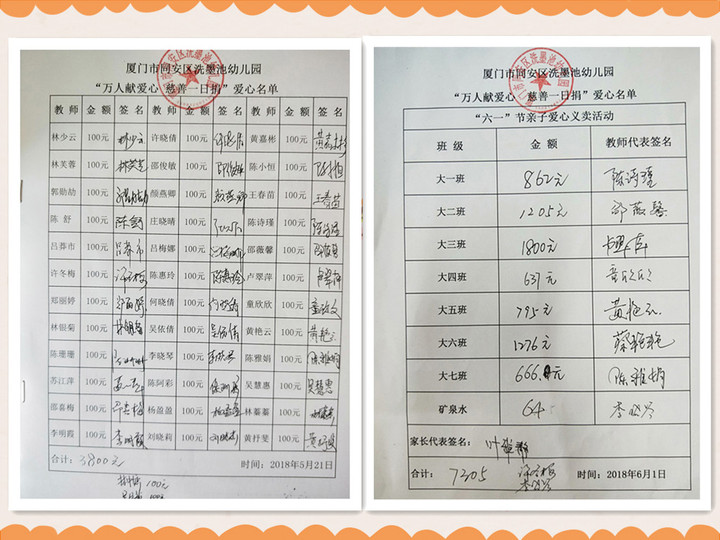 厦门市同安区洗墨池幼儿园
“万人献爱心 慈善一日捐”爱心名单
教师 金额 签名 教师 金额 签名 教师 金额 签名
林少云 100元 林少云 许晓倩 100元 许晓倩 黄嘉彬 100元 黄嘉彬
林芙蓉 100元 林芙蓉 邵俊敏 100元 邵俊敏 陈小恒 100元
郭勋劼 100元 郭勋劼 颜燕卿 100元 颜燕卿 王春苗 100元 王春苗
陈舒 100元 陈舒 庄晓晴 100元 陈诗瑾 100元 陈诗瑾
吕莽市 100元 吕梅娜 100元 邵薇馨 100元
许冬梅 100元 许冬梅 陈惠玲 100元 陈惠玲 卢翠萍 100元
郑丽婷 100元 郑丽婷 何晓倩 100元 何晓倩 童欣欣 100元
林银菊 100元 林银菊 吴依倩 100元 吴依倩 黄艳云 100元 黄艳云
陈珊珊 100元 李晓琴 100元 陈雅娟 100元 陈雅娟
苏江萍 100元 陈阿彩 100元 吴慧惠 100元 吴慧惠
邵喜梅 100元 杨盈盈 100元 杨盈盈 林蓁蓁 100元
李明霞 100元 李明霞 刘晓莉 100元 刘晓莉 黄抒斐 100元
合计：3800元 时间：2018年5月21日
100元
厦门市同安区洗墨池幼儿园
“万人献爱心 慈善一日捐”爱心名单
“六一”节亲子爱心义卖活动
班级 金额 教师代表签名
大一班 862元 陈诗瑾
大二班 1205元
大三班 1800元
大四班 631元 童欣欣
大五班 795元 黄艳云
大六班 1276元 蔡艳艳
大七班 666.4元 陈雅娟
矿泉水 64
家长代表签名：
合计： 7205 许冬梅 时间：2018年6月1日